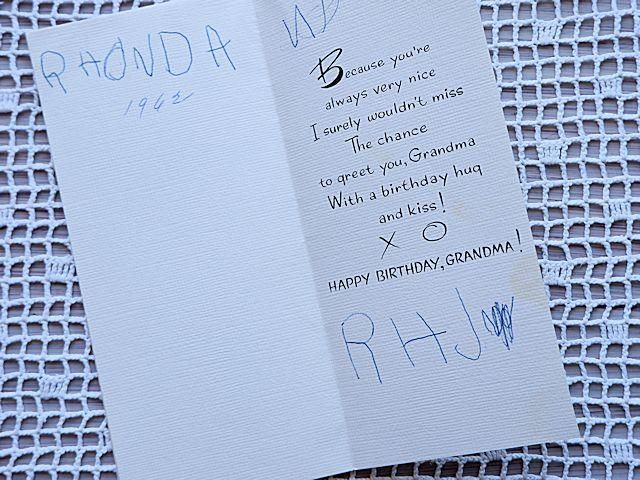 RHONDA
1962
Because you're
always very nice
I surely wouldn't miss
The chance
to greet you, Grandma
With a birthday hug
and kiss!
X O
HAPPY BIRTHDAY, GRANDMA!
RHJ